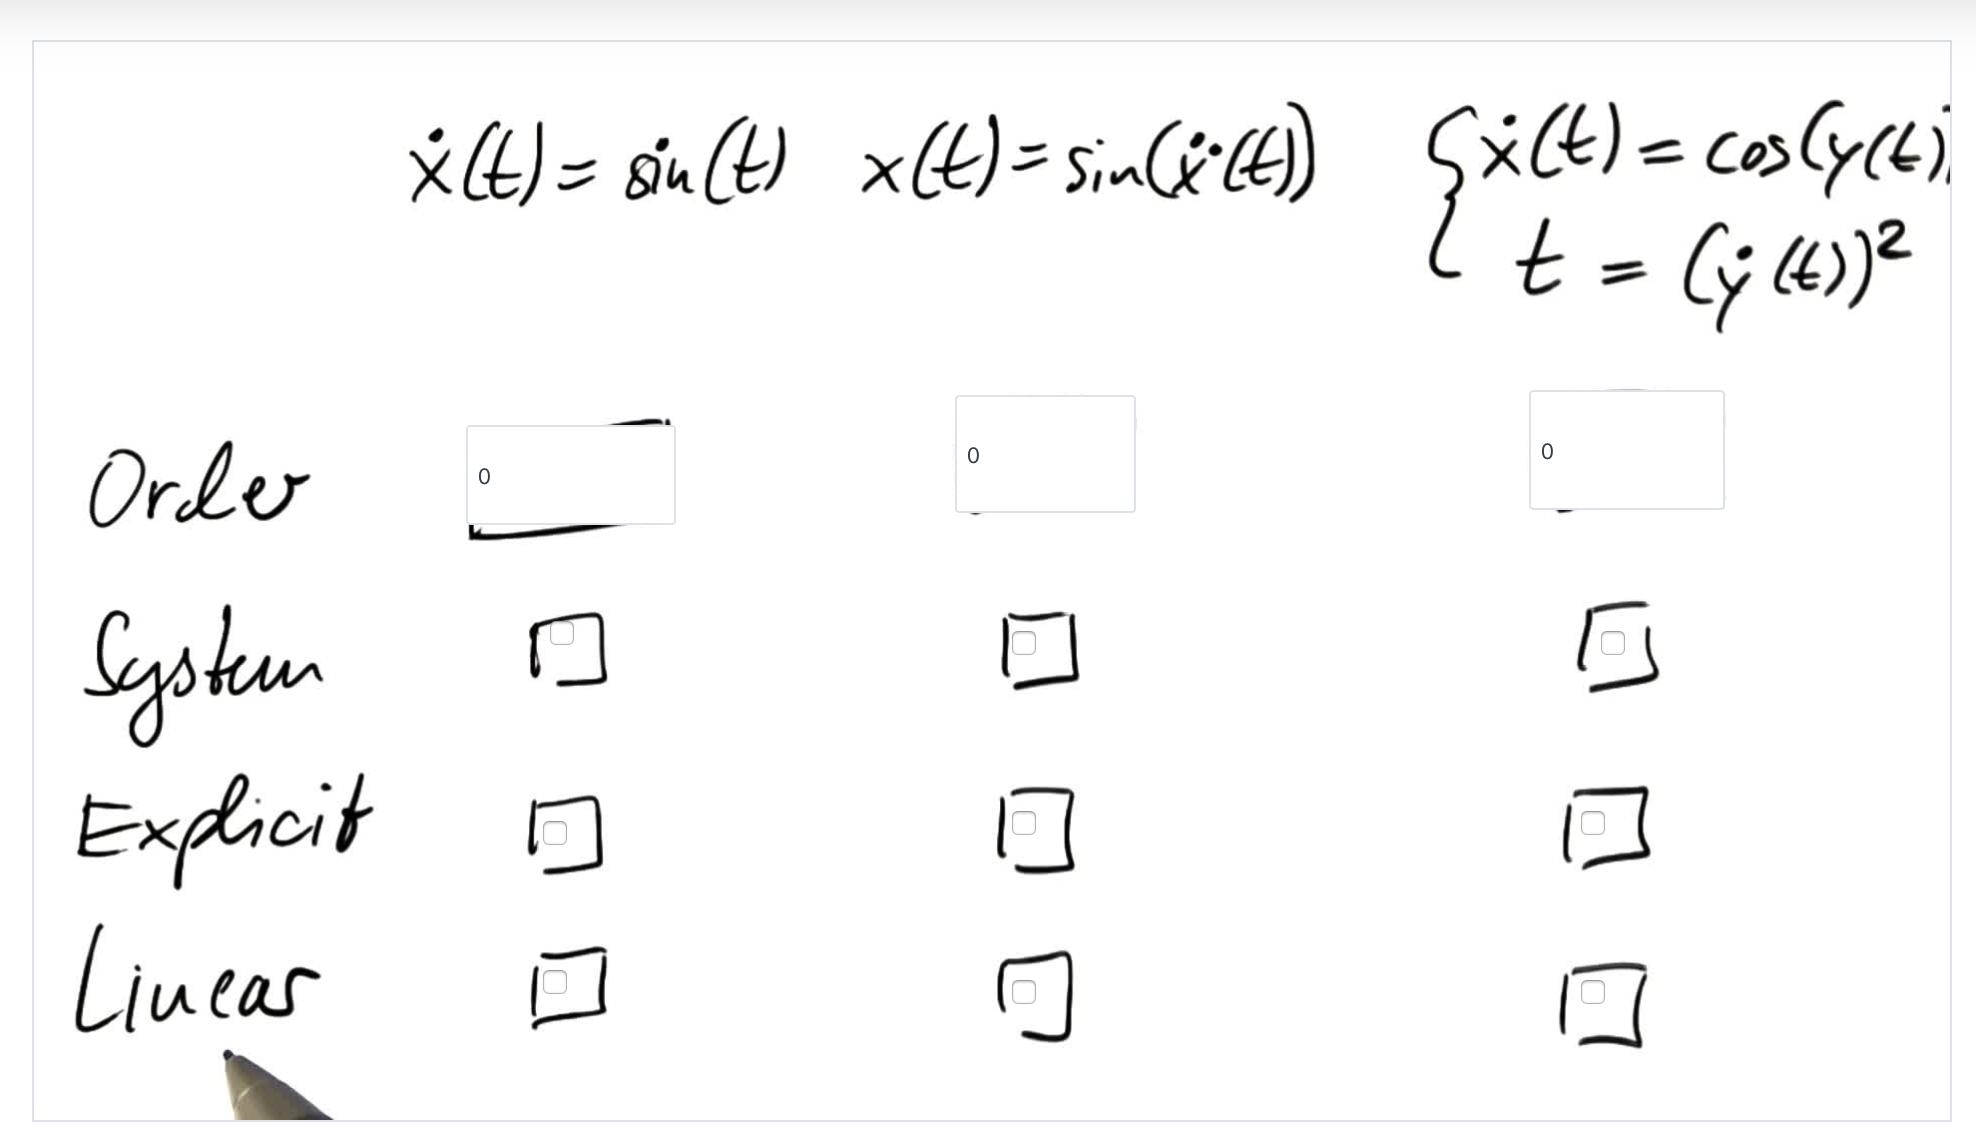 ẋ(t) = sin(t) x(t) = sin(ẍ(t)) {ẋ(t) = cos(y(t)
t = (ẏ(t))²
Order 0 0 0
System
Explicit
Linear